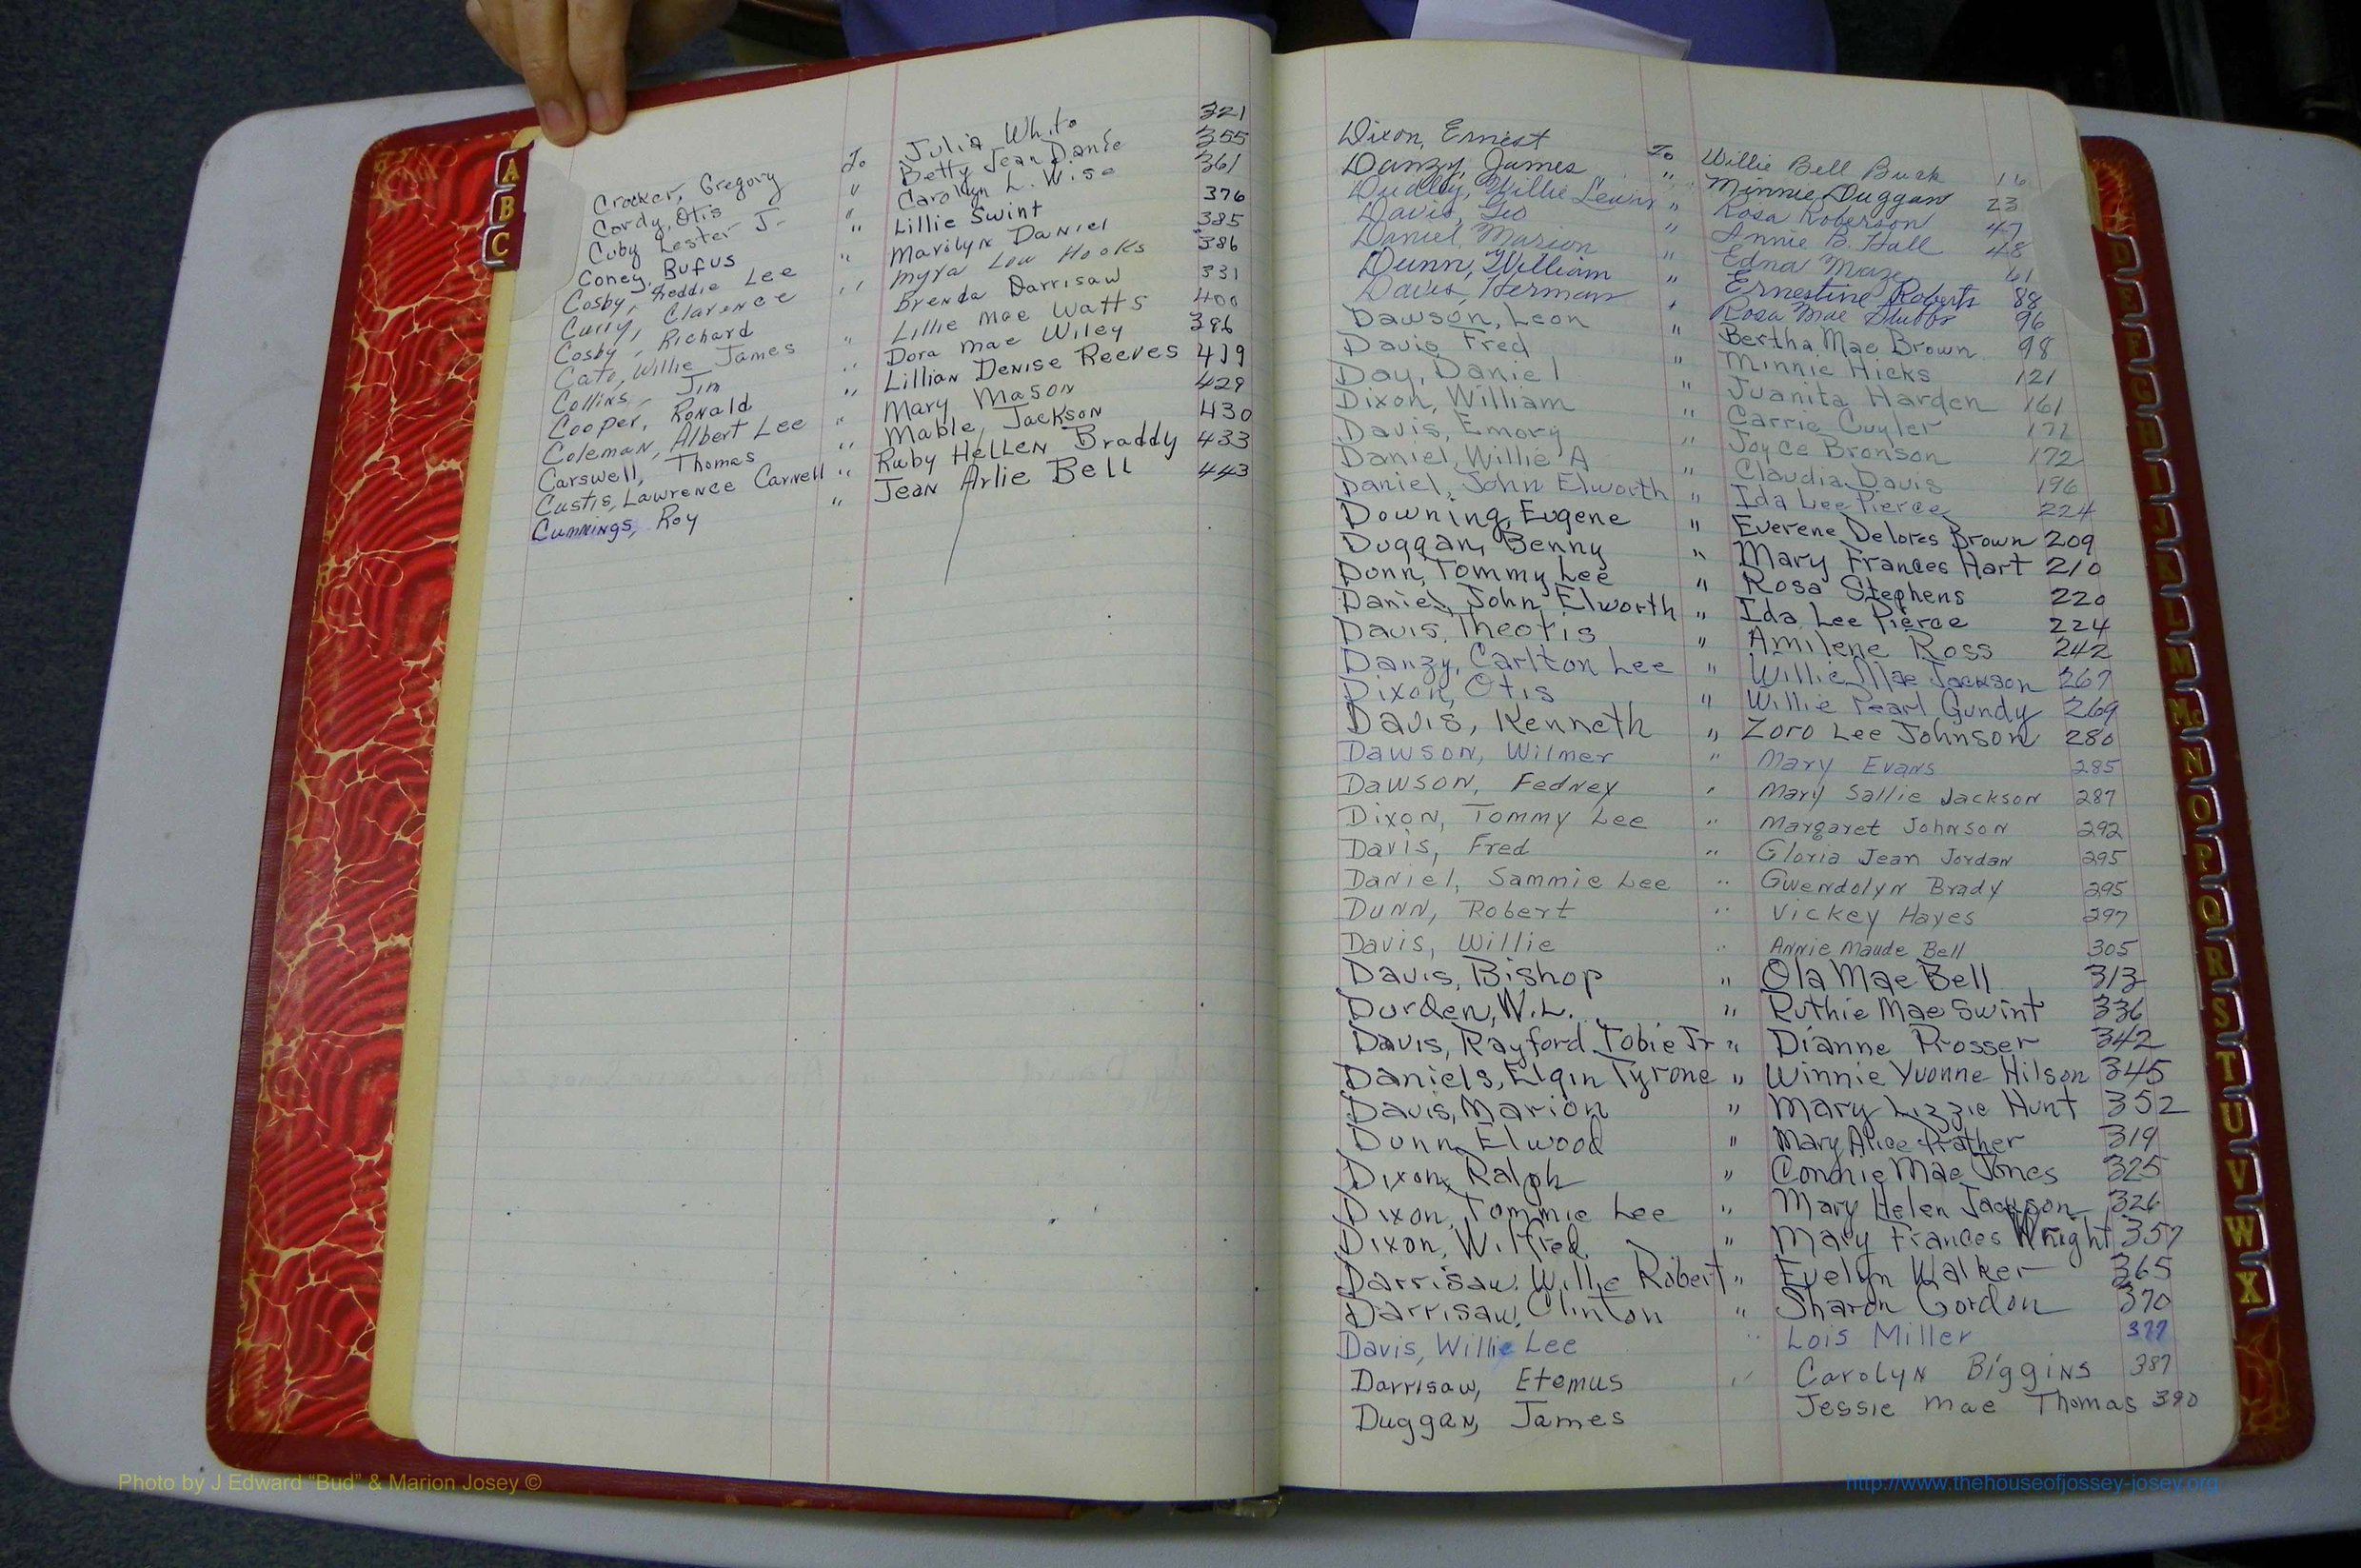 A
B
C
Crocker, Gregory To Julia White 321
Cordy, Otis " Betty Jean Danie 355
Cuby Lester J. " Carolyn L. Wise 361
Coney, Rufus " Lillie Swint 376
Cosby, Freddie Lee " Marilyn Daniel 385
Curry, Clarence " Myra Lou Hooks 386
Cosby, Richard Brenda Darrisaw 331
Cato, Willie James " Lillie Mae Watts 400
Collins, Jim " Dora Mae Wiley 396
Cooper, Ronald " Lillian Denise Reeves 419
Coleman, Albert Lee " Mary Mason 429
Carswell, Thomas " Mable Jackson 430
Custis, Lawrence Carnell " Ruby Hellen Braddy 433
Cummings, Roy " Jean Arlie Bell 443
Dixon, Ernest To Willie Bell Buck 16
Danzy, James " Minnie Duggan 23
Dudley, Willie Lewis " Rosa Roberson 47
Davis, Geo " Annie B. Hall 48
Daniel, Marion " Edna Maze 61
Dunn, William " Ernestine Roberts 88
Davis, Herman " Rosa Mae Stubbs 96
Dawson, Leon " Bertha Mae Brown 98
Davis Fred " Minnie Hicks 121
Day, Daniel " Juanita Harden 161
Dixon, William " Carrie Cuyler 171
Davis, Emory " Joyce Bronson 172
Daniel, Willie A " Claudia Davis 196
Daniel, John Elworth " Ida Lee Pierce 224
Downing, Eugene " Everene Delores Brown 209
Duggan, Benny " Mary Frances Hart 210
Dunn, Tommy Lee " Rosa Stephens 220
Daniel, John Elworth " Ida Lee Pierce 224
Davis, Theotis " Amilene Ross 242
Danzy, Carlton Lee " Willie Mae Jackson 267
Dixon, Otis " Willie Pearl Gundy 269
Davis, Kenneth " Zoro Lee Johnson 280
Dawson, Wilmer " Mary Evans 285
Dawson, Fedney " Mary Sallie Jackson 287
Dixon, Tommy Lee " Margaret Johnson 292
Davis, Fred " Gloria Jean Jordan 295
Daniel, Sammie Lee " Gwendolyn Brady 295
Dunn, Robert " Vickey Hayes 297
Davis, Willie " Annie Maude Bell 305
Davis, Bishop " Ola Mae Bell 313
Durden, W.L. " Ruthie Mae Swint 336
Davis, Rayford Tobie Jr " Dianne Prosser 342
Daniels, Elgin Tyrone " Winnie Yvonne Hilson 345
Davis, Marion " Mary Lizzie Hunt 352
Dunn, Elwood " Mary Alice Prather 319
Dixon, Ralph " Connie Mae Jones 325
Dixon, Tommie Lee " Mary Helen Jackson 326
Dixon, Wilfred " Mary Frances Wright 357
Darrisaw, Willie Robert " Evelyn Walker 365
Darrisaw, Clinton " Sharon Gordon 370
Davis, Willie Lee " Lois Miller 377
Darrisaw, Etemus " Carolyn Biggins 387
Duggan, James Jessie Mae Thomas 390
D
E
F
G
H
I
J
K
L
M
Mc
N
O
P
Q
R
S
T
U
V
W
X
Photo by J Edward "Bud" & Marion Josey ©
http://www.thehouseofjossey-josey.org